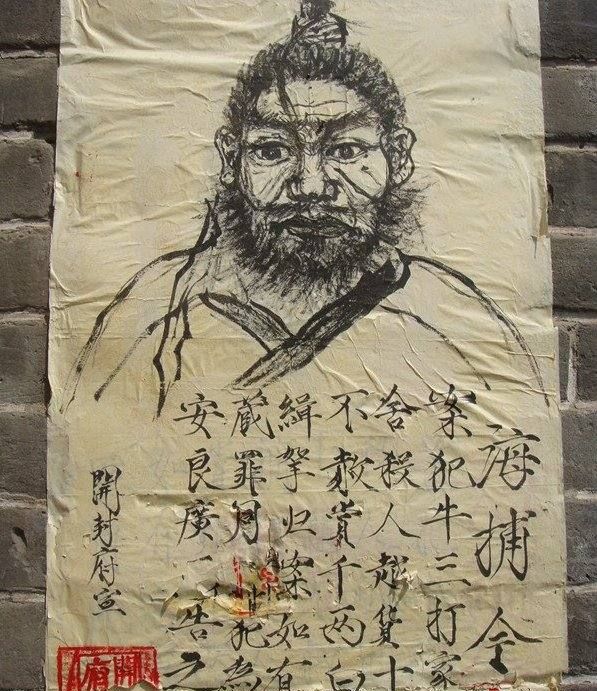 海捕令
案犯牛三打家
舍殺人越貨十
不赦賞千两白
緝拏归案如有
蔵罪同犯
安良廣告之
開封府宣
開府